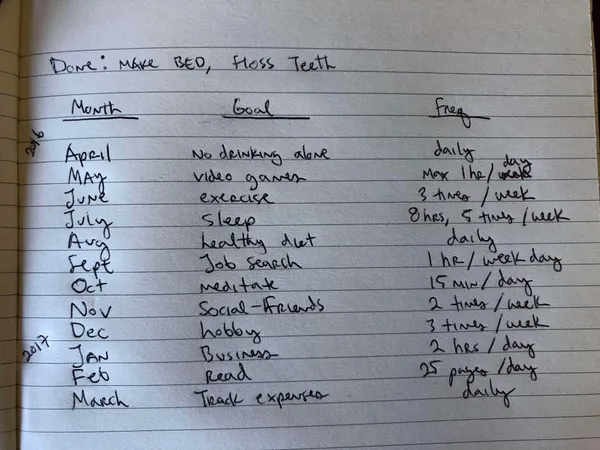 Done: Make Bed, floss Teeth
Month Goal Freq
2016
April No drinking alone daily
May video games Max 1 hr/week day
June exercise 3 times/week
July Sleep 8 hrs, 5 times/week
Aug healthy diet daily
Sept Job search 1 hr/week day
Oct meditate 15 min/day
Nov Social-friends 2 times/week
Dec hobby 3 times/week
2017
Jan Business 2 hrs/day
Feb Read 25 pages/day
March Track expenses daily